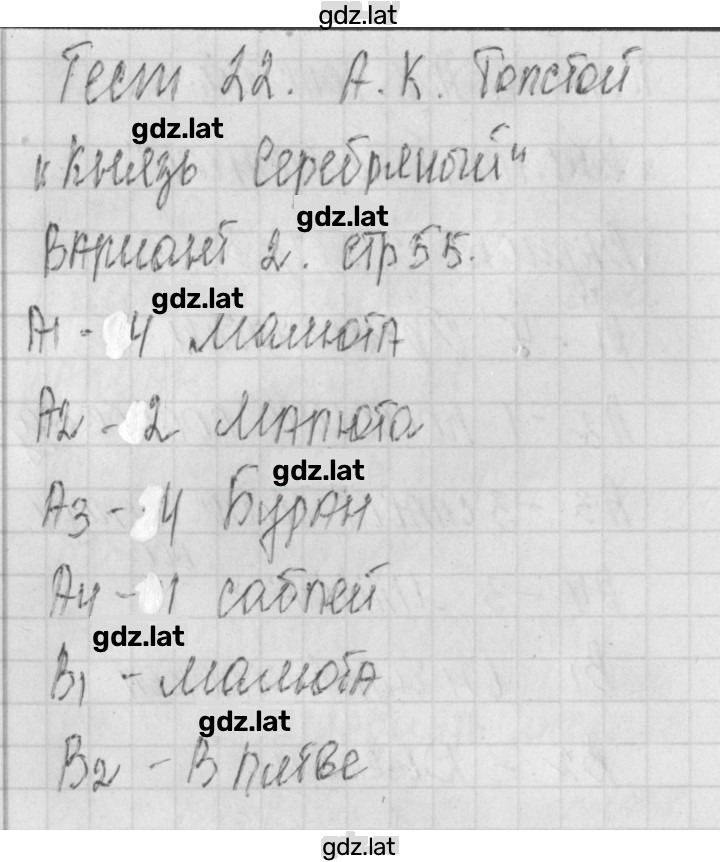 gdz.lat
Тест 22. А.К. Толстой
gdz.lat
"Князь Серебряный"
gdz.lat
Вариант 2. стр 55.
gdz.lat
А1 - 4 Малюта
А2 - 2 Малюта
gdz.lat
А3 - 4 Буран
А4 - 1 саблей
gdz.lat
В1 - Малюта
gdz.lat
В2 - В Литве
gdz.lat